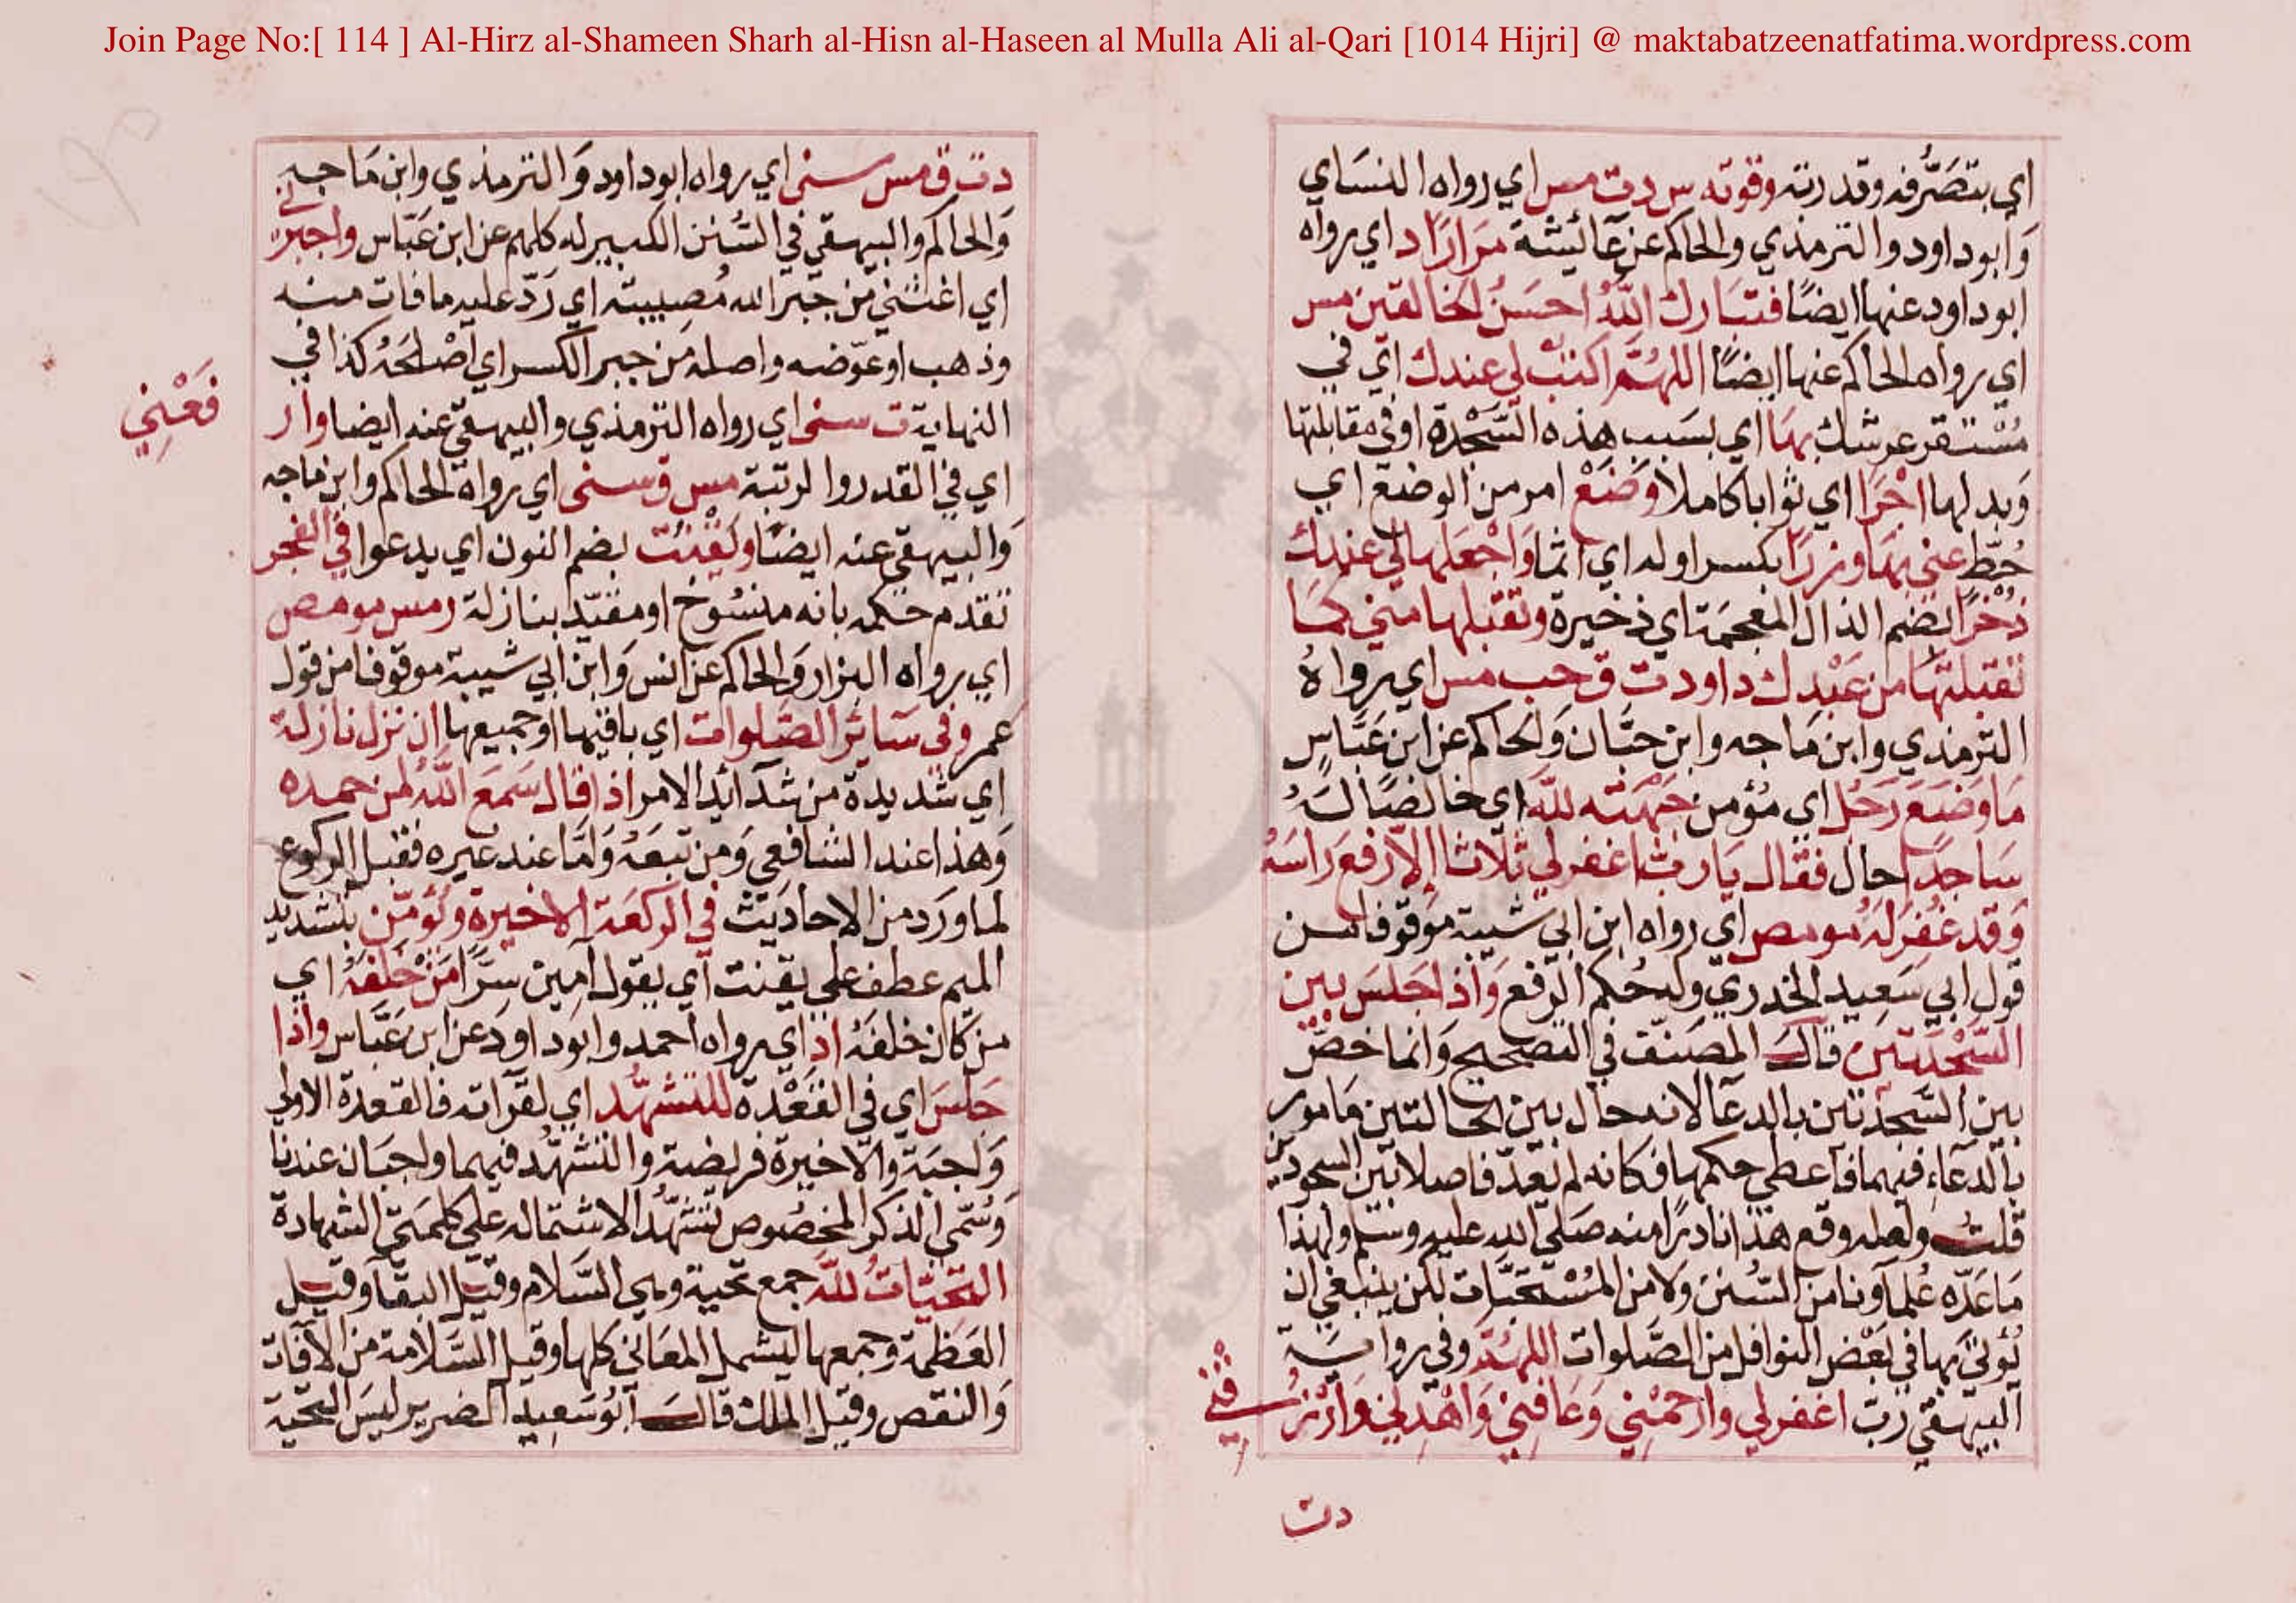 Join Page No:[ 114 ] Al-Hirz al-Shameen Sharh al-Hisn al-Haseen al Mulla Ali al-Qari [1014 Hijri] @ maktabatzeenatfatima.wordpress.com
اي بتصَرُّفه وقدرته وقوته س دت مس اي رواه النسَاي
وَابوداود والترمذي والحاكم عن عَائيشَة مَرَارًا د اي رواه
ابوداود عنها ايضًا فتبَارك اللهُ احسَنُ الخالقين مس
اي رواه الحاكم عنها ايضًا اللهُمَّ اكتبْ لي عندك اي في
مُسْتقر عرشك بهَا اي بسَبب هذه السَّجْدة او في مقابلتها
وَبدلها اجْرًا اي ثوابا كاملا وَضَعْ امر من الوضع اي
حُطّ عني بهَا وزرًا بكسر اوله اي اثما وَاجْعَلها لي عندك
ذُخْرًا بضم الذال المعجمَة اي ذخيرة وتقبلها مني كمَا
تقبلتهَا من عَبْدك داود ت ق حب مس اي رواهُ
الترمذي وابن مَاجه وابن حبَّان وَالحَاكم عن ابن عَبَّاسٍ
مَا وَضَعَ رَجُل اي مُؤمن جَبْهَته لله اي خالصًا لهُ
سَاجدًا حال فقال يَا رب اغفر لي ثلاثا الاّ رفعَ رَاسَهُ
وَقد غُفِرَ لهُ مو مص اي رواه ابن ابي شيبة مَوقوفا من
قول ابي سَعيد الخدري وله حُكم الرفع وَاذا جَلسَ بين
السَّجْدَتين قال المصَنّف في التصحيح وَانما خصّ
بين السَّجدَتين بالدعَا لانه حال بين الحالتين مَامور
بالدعَاء فيهما فاعطي حكمها فكانه لم يعَدّ فاصلا بَين السجودين
قلت ولعله وقع هذا نادرًا منه صَلى الله عليه وسلم ولهذا
مَا عَدّه عُلماَونا من السُّنن وَلا من المُسْتحبَّات لكن ينبغي ان
يُؤتىَ بها في بعْض النوافل من الصَّلوات اللهُمَّ وفي روَايَة
البيهقي رَبّ اغفر لي وارْحَمْنِي وَعَافِنِي وَاهْدِني وَارْزُ
قْنِي
دت
دت ق مس سنى اي رواه ابوداود وَالترمذي وابن مَاجه
وَالحاكم والبيهقي في السُّنن الكبير له كلهم عن ابن عَبّاس واجبر
ني
اي اغثني من جَبر الله مُصيبته اي رَدّ عليه ما فات منه
وذهب او عوّضه واصله مِن جبر الكسر اي اصْلحَهُ كذا في
النهاية ت سنى اي رواه الترمذي والبيهقي عنه ايضا وار
فَعْنِي
اي في القدر والرتبة مس ق سنى اي رواه الحاكم وابن ماجه
وَالبيهقي عنه ايضًا ويَقْنُت بضم النون اي يدعوا في الفجر
تقدم حكمه بانه منسُوخ او مقيّد بنازلة ر مس مو مص
اي رواه البزار وَالحاكم عن انس وَابن ابي شيبة موقوفا من قول
عمر وفي سَائر الصَّلوات اي باقيها او جميعها ان نزل نازلة
اي شديدة من شدَائد الامر اذا قال سَمعَ اللهُ لمن حمده
وَهذا عند الشافعي وَمن تبعَهُ وَامَّا عند غيره فقبل الركوع
لما وَرَد من الاحاديث في الركعَة الاخيرة ويُؤمّن بتشديد
الميم عطف على يقنت اي يقول آمين سِرًّا مَنْ خَلفَهُ اي
من كان خلفهُ اد اي رواه احمد وابوداود عن ابن عَبَّاس واذا
جَلسَ اي في القعْدة للتشهُّد اي لقرآته فالقعدة الاولى
وَاجبَة وَالاخيرَة فريضة والتشهُّد فيهما واجبَان عندنا
وَسُمّي الذكر المخصُوص تشهُّدا لاشتماله على كلمتي الشهادة
التحيّاتُ لله جمع تحية وهي السَّلام وقيل البقَا وقيل
العَظمة وجمعها ليشمل المعَاني كلها وقيل السَّلامة من الافات
وَالنقص وقيل الملك قال ابُو سَعيد الضرير ليسَ التحية